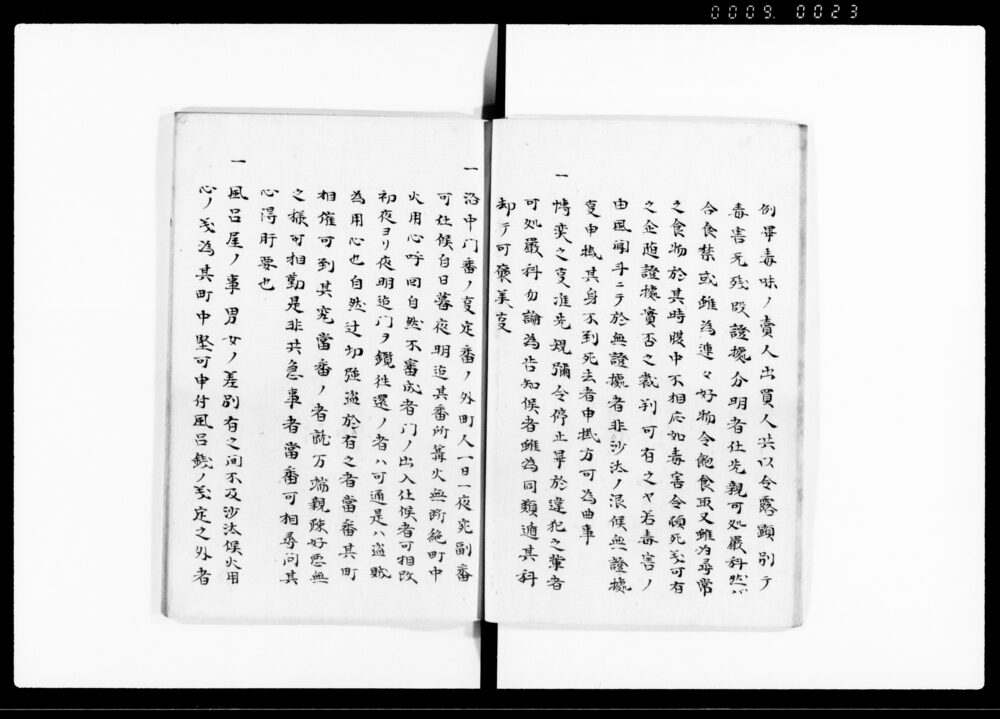 0009. 0023
例畢毒味ノ賣人出買人共以令露顕別テ
毒害死残毀證據分明者任先親可処嚴科然ハ
合食禁或雖為連々好物令飽食取又雖為尋常
之食物於其時腹中不相応如毒害令頓死義可有
之企随證據實否之裁判可有之ヤ若毒害ノ
由風聞斗ニテ於無證據者非沙汰ノ限候無證據
変申掛其身不到死去者申掛方可為曲事
一 博奕之変准先規彌令停止畢於違犯之輩者
可処嚴科勿論為告知候者雖為同類適其科
却テ可褒美変
一 洛中门番ノ変定番ノ外町人一日一夜宛副番
可仕候自日暮夜明迠其番所篝火無断絶町中
火用心呼回自然不審成者门ノ出入仕候者可相改
初夜ヨリ夜明迠门ヲ鑽徃還ノ者ハ可通是ハ盗賊
為用心也自然辻切強盗於有之者當番其町
相催可到其究當番ノ者就万端親疎好悪無
之様可相勤是非共急事者當番可相尋问其
心得肝要也
一 風呂屋ノ事男女ノ差別有之间不及沙汰候火用
心ノ義為其町中堅可申付風呂錢ノ義定之外者